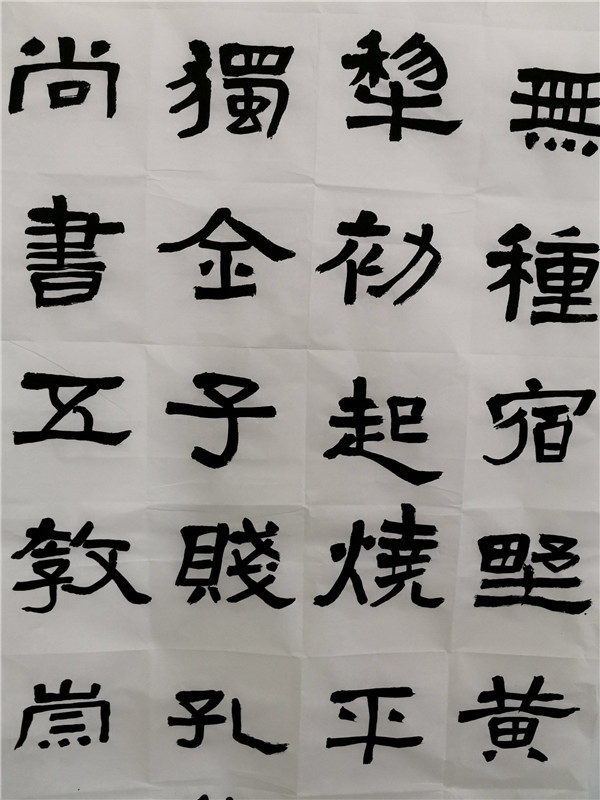 無種宿野黃
犂初起燒平
獨金子賤孔
尚書五教崇